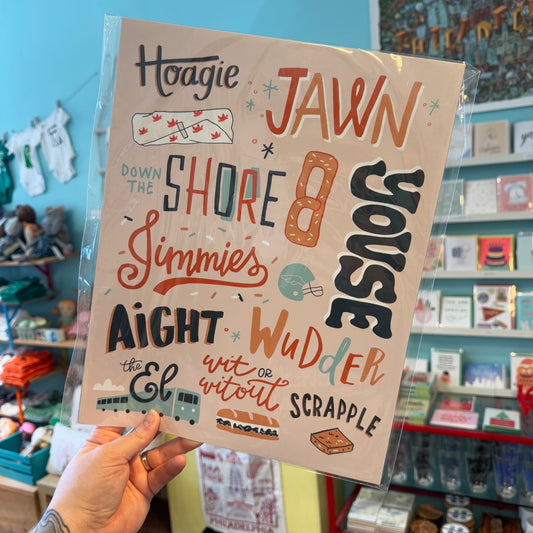 Hoagie
JAWN
DOWN
THE
SHORE
YOUSE
Jimmies
AIGHT
WuDDER
the
El
wit OR
witout
SCRAPPLE
PHILADELPHIA